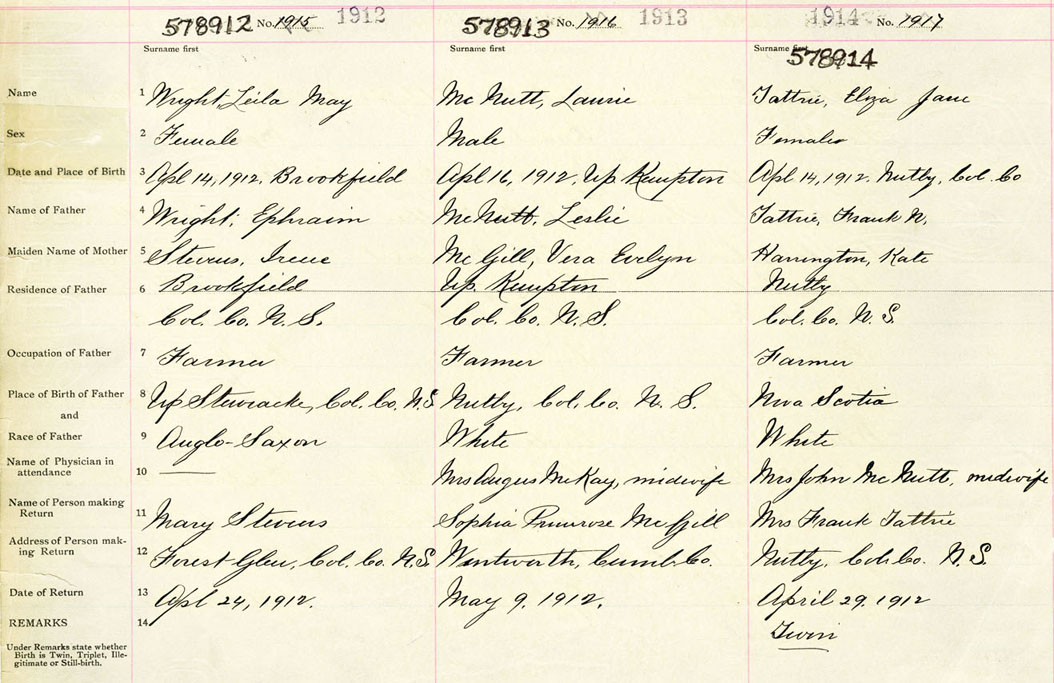 578912 No. 1915 1912 578913 No. 1916 1913 1914 No. 1917
Surname first Surname first Surname first
578914
Name 1 Wright, Leila May Mc Nutt, Laurie Tattrie, Eliza Jane
Sex 2 Female Male Female
Date and Place of Birth 3 Apl 14, 1912. Brookfield Apl 16, 1912, Up. Kempton Apl 14, 1912. Nutby, Col. Co
Name of Father 4 Wright, Ephraim McNutt, Leslie Tattrie, Frank N.
Maiden Name of Mother 5 Stevens, Irene McGill, Vera Evelyn Harrington, Kate
Residence of Father 6 Brookfield Up. Kempton Nutby
Col. Co. N. S. Col. Co. N. S. Col. Co. N. S.
Occupation of Father 7 Farmer Farmer Farmer
Place of Birth of Father 8 Up Stewiacke, Col. Co. N.S. Nutby, Col. Co. N. S. Nova Scotia
and
Race of Father 9 Anglo-Saxon White White
Name of Physician in
attendance 10 Mrs Angus McKay, midwife Mrs John McNutt, midwife
Name of Person making
Return 11 Mary Stevens Sophia Primrose McGill Mrs Frank Tattrie
Address of Person mak-
ing Return 12 Forest Glen, Col. Co. N.S Wentworth, Cumb. Co. Nutby, Col. Co. N. S.
Date of Return 13 Apl 24, 1912. May 9. 1912. April 29. 1912
REMARKS 14 Twin
Under Remarks state whether
Birth is Twin, Triplet, Ille-
gitimate or Still-birth.